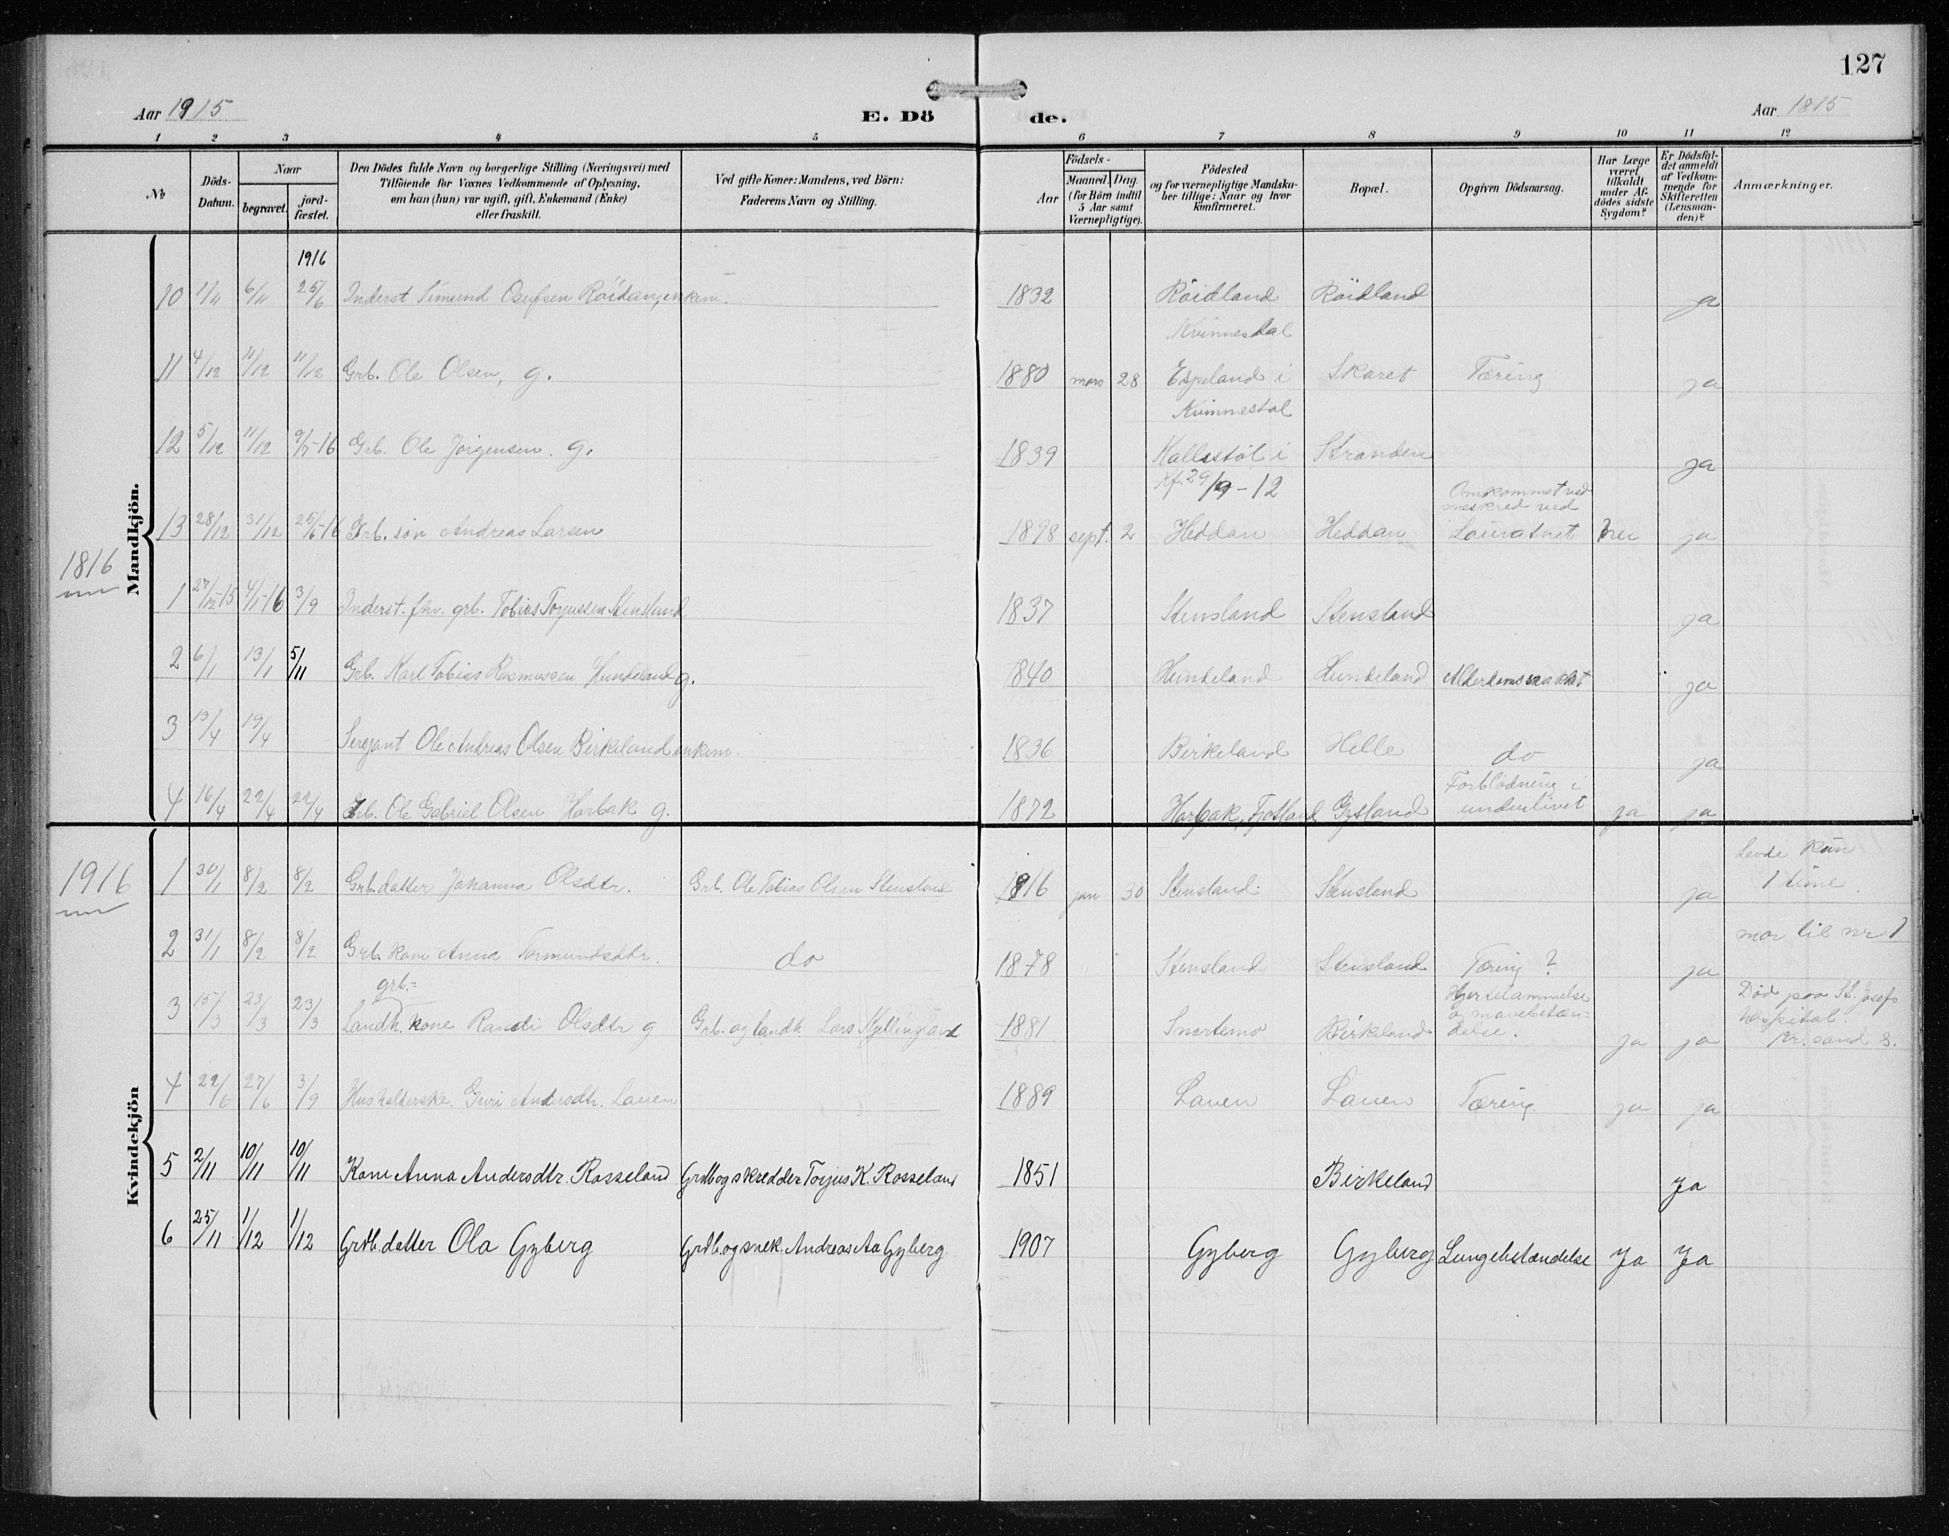 127
Aar 1915.
E. Dö
de.
Aar 1815
1 2 3 4 5 6 7 8 9 10 11 12
No
Döds-Datum.
Naar
begravet.
jord-fæstet.
Den Dödes fulde Navn og borgerlige Stilling (Næringsvei) med
Tilföiende for Voxnes Vedkommende af Oplysning,
om han (hun) var ugift, gift, Enkemand (Enke)
eller fraskilt.
Ved gifte Koner: Mandens, ved Börn:
Faderens Navn og Stilling.
Födsels-
Aar
Maaned. Dag.
(for Börn indtil
5 Aar samt
Værnepligtige).
Födested
og for værnepligtige Mandska-
ber tillige: Naar og hvor
konfirmeret.
Bopæl.
Opgiven Dödsaarsag.
Har Læge
været
tilkaldt
under Af-
dödes sidste
Sygdom?
Er Dödsfal-
det anmeldt
af Vedkom-
mende for
Skifteretten
(Lensman-
den)?
Anmærkninger.
Mandkjön.
1916
10 1/11 6/11 25/6 Inderst Simund Osufsen Röidlang, enkem. 1832 Röidland Röidland ja
Kvinnesdal
11 4/12 11/12 11/12 Grb. Ole Olsen, g. 1880 mars 28 Espeland i Skaret Tæring ja
Kvinnesdal
12 5/12 11/12 9/5-16 Grb. Ole Jörgensen. g. 1839 Hallestöl i Stranden ja
Kf. 29/9-12 Omkommet ved
sneskred ved
13 28/12 31/12 25/6-16 Grb. sön Andreas Larsen 1898 sept. 2 Heddan Heddan nei ja
1816
1 27/12-15 4/1-16 3/9 Inderst. fhv. grb. Tobias Torjussen Stensland 1837 Stensland Stensland ja
2 6/1 13/1 5/11 Grb. Karl Tobias Rasmussen Hundeland g. 1840 Hundeland Hundeland Alderdomssvakhet ja
3 13/4 19/4 Sergant Ole Andreas Olsen Birkeland enkem. 1836 Birkeland Helle do ja
Forblödning i
4 16/4 22/4 22/4 Grb. Ole Gabriel Olsen Harbak g. 1872 Harbak, Fjotland Gysland underlivet ja ja
Kvindekjön
1916
Levde kun
1 30/1 8/2 8/2 Grb. datter Johanna Olsdtr. Grb. Ole Tobias Olsen Stensland 1916 jan 30 Stensland. Stensland ja 1 time.
2 31/1 8/2 8/2 Grb. kone Anna Tormundsdtr. do 1878 Stensland Stensland Tæring ? ja mor til nr 1
grb.= Hjertelammelse Död paa St. Josefs
og mavebetæn- hospital.
3 15/3 23/3 23/3 Landh. kone Randi Olsdtr g Grb. og landh. Lars 1881 Snartemo Birkeland delse. ja ja Kr.sand S.
4 22/6 27/6 3/9 Husholderske. Guri Andersdtr. Lauen 1889 Lauen Lauen Tæring ja ja
5 2/11 10/11 10/11 Kone Anna Andersdtr. Rosseland Grdb og skredder Torjus K. Rosseland 1851 Birkeland Ja
6 25/11 1/12 1/12 Grdb. datter Ola Gyberg Grdb. og snek. Andreas Aa Gyberg 1907 Gyberg Gyberg Lungebetændelse Ja Ja